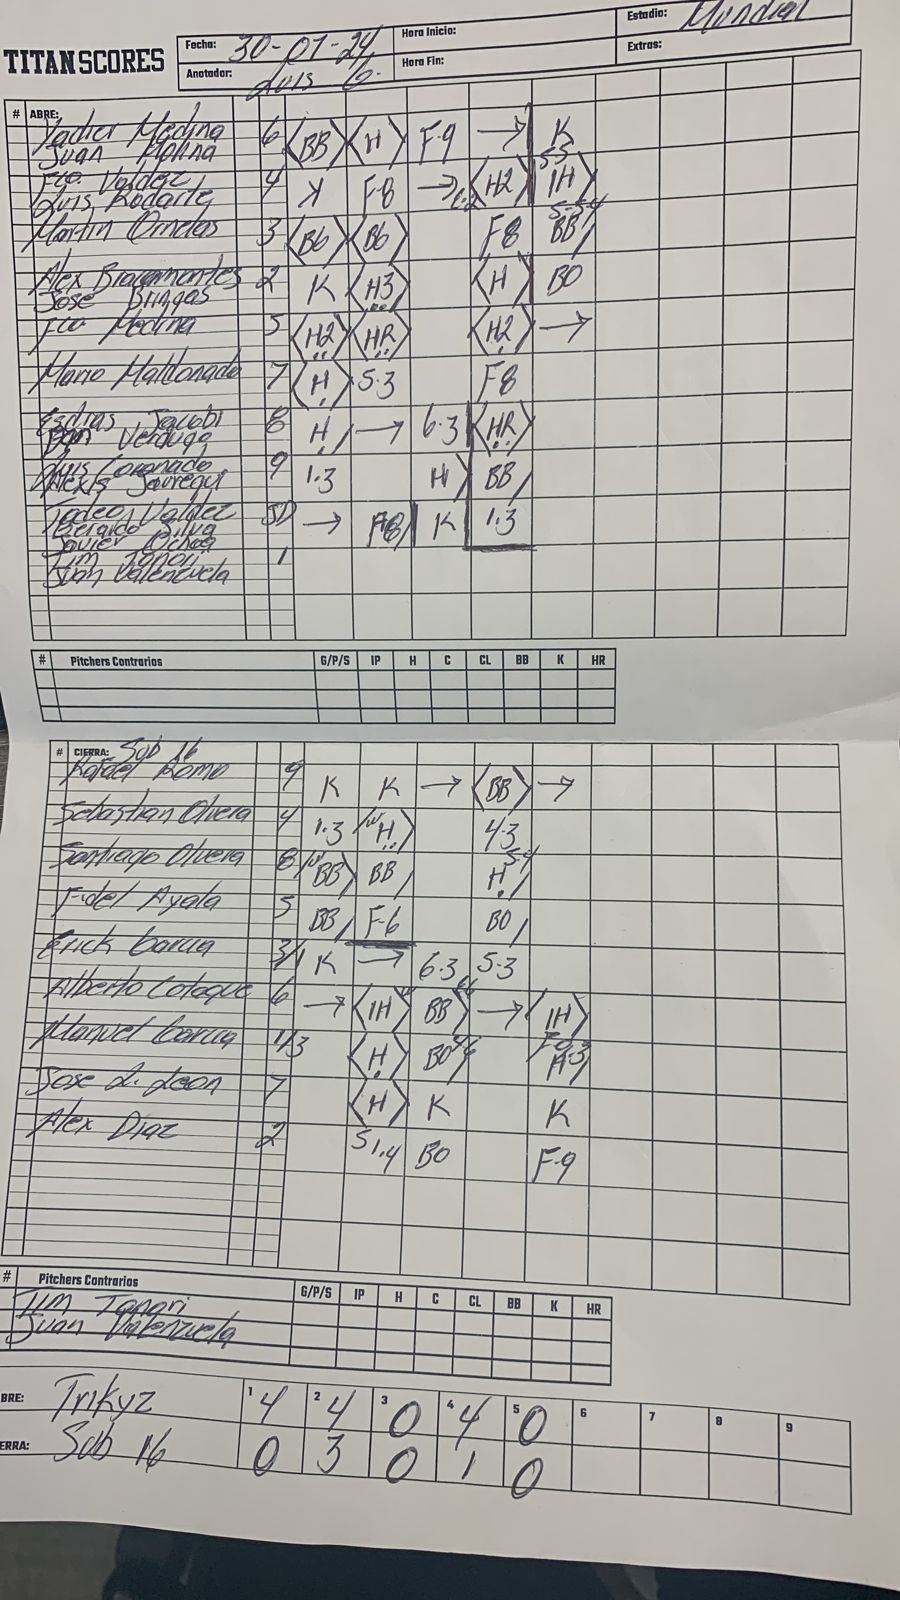 TITAN SCORES
Fecha: 30-07-24
Hora Inicio:
Estadio: Mundial
Anotador: Luis G.
Hora Fin:
Extras:
# ABRE:
Yadier Medina 6 BB H F-9 → K
Juan Molina
Fco. Valdez 4 K F-8 → H2 IH
Luis Rodarte
Martin Ornelas 3 BB F8 BB
Alex Bracamontes 2 K H3 H BO
Jose Bringas
Fco Medina 5 H2 HR H2 →
Mario Maldonado 7 H 5-3 F8
Esdras Jacobi 8 H → 6-3 HR
Verdugo
Luis Coronado 9 1-3 H BB
Alexis Jauregui
Valdez → F8 K 1-3
Gerardo Silva
Javier Ochoa
Tim Tanori 1
Juan Valenzuela
# Pitchers Contrarios G/P/S IP H C CL BB K HR
# CIERRA: Sub 16
Rafael Romo 9 K K → BB →
Sebastian Olvera 4 1-3 H 4-3
Santiago Olvera 8 BB BB H
Fidel Ayala 5 BB F-6 BO
Erick Garcia 3/1 K → 6-3 5-3
Alberto 6 → IH BB → IH
Manuel Garcia 1/3 H BO
Jose L. Leon 7 H K K
Alex Diaz 2 BO F-9
# Pitchers Contrarios G/P/S IP H C CL BB K HR
Tim Tanori
Juan Valenzuela
1 2 3 4 5 6 7 8 9
BRE: Trikyz 4 4 0 4 0
ERRA: Sub 16 0 3 0 1 0